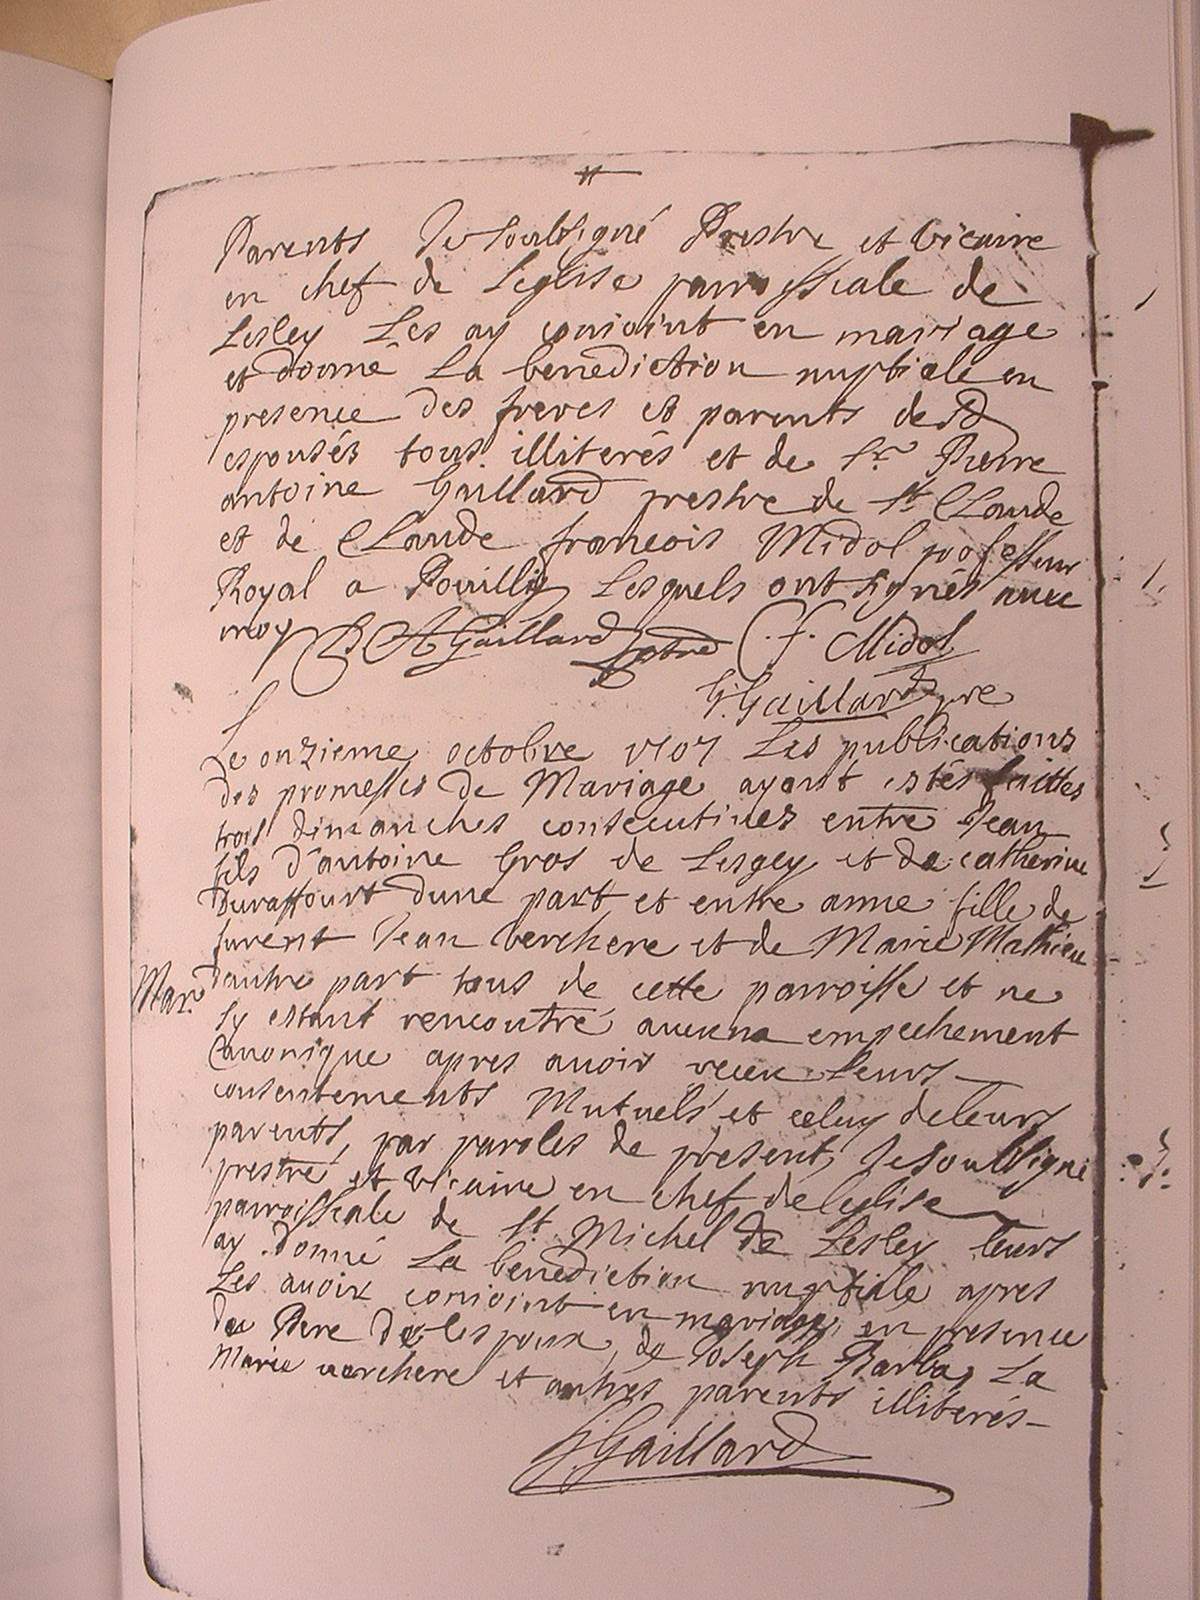 Parents Je soubsigné Prestre et vicaire
en chef de Leglise parroissiale de
Lesley Les ay conioint en mariage
et donné La benediction nuptiale en
presence des freres et parents desd
espousés tous illiterés et de Sr Pierre
antoine Gaillard prestre de St Claude
et de Claude francois Midol professeur
Royal a Pouilly Lesquels ont signés avec
moy P A Gaillard C. f. Midol
G. Gaillard pre
Le onzieme octobre 1707 Les publications
des promesses de Mariage ayant estés faittes
trois dimanches consecutives entre Jean
fils d'antoine Gros de Lesgey et de catherine
Duraffourt dune part et entre anne fille de
furent Jean verchere et de Marie Mathieu
Mar. dautre part tous de cette parroisse et ne
sy estant rencontré aucun empechement
Canonique apres avoir receu Leurs
consentements Mutuels et celuy de leurs
parents, par paroles de present, Je soubsigné
prestre et vicaire en chef de leglise
parroissiale de St Michel de Lesley leurs
ay donné La benediction nuptiale apres
Les avoir conioint en mariage, en presence
du Pere de lespoux, de Joseph Barba, La
Marie verchere et autres parents illiterés
G. Gaillard